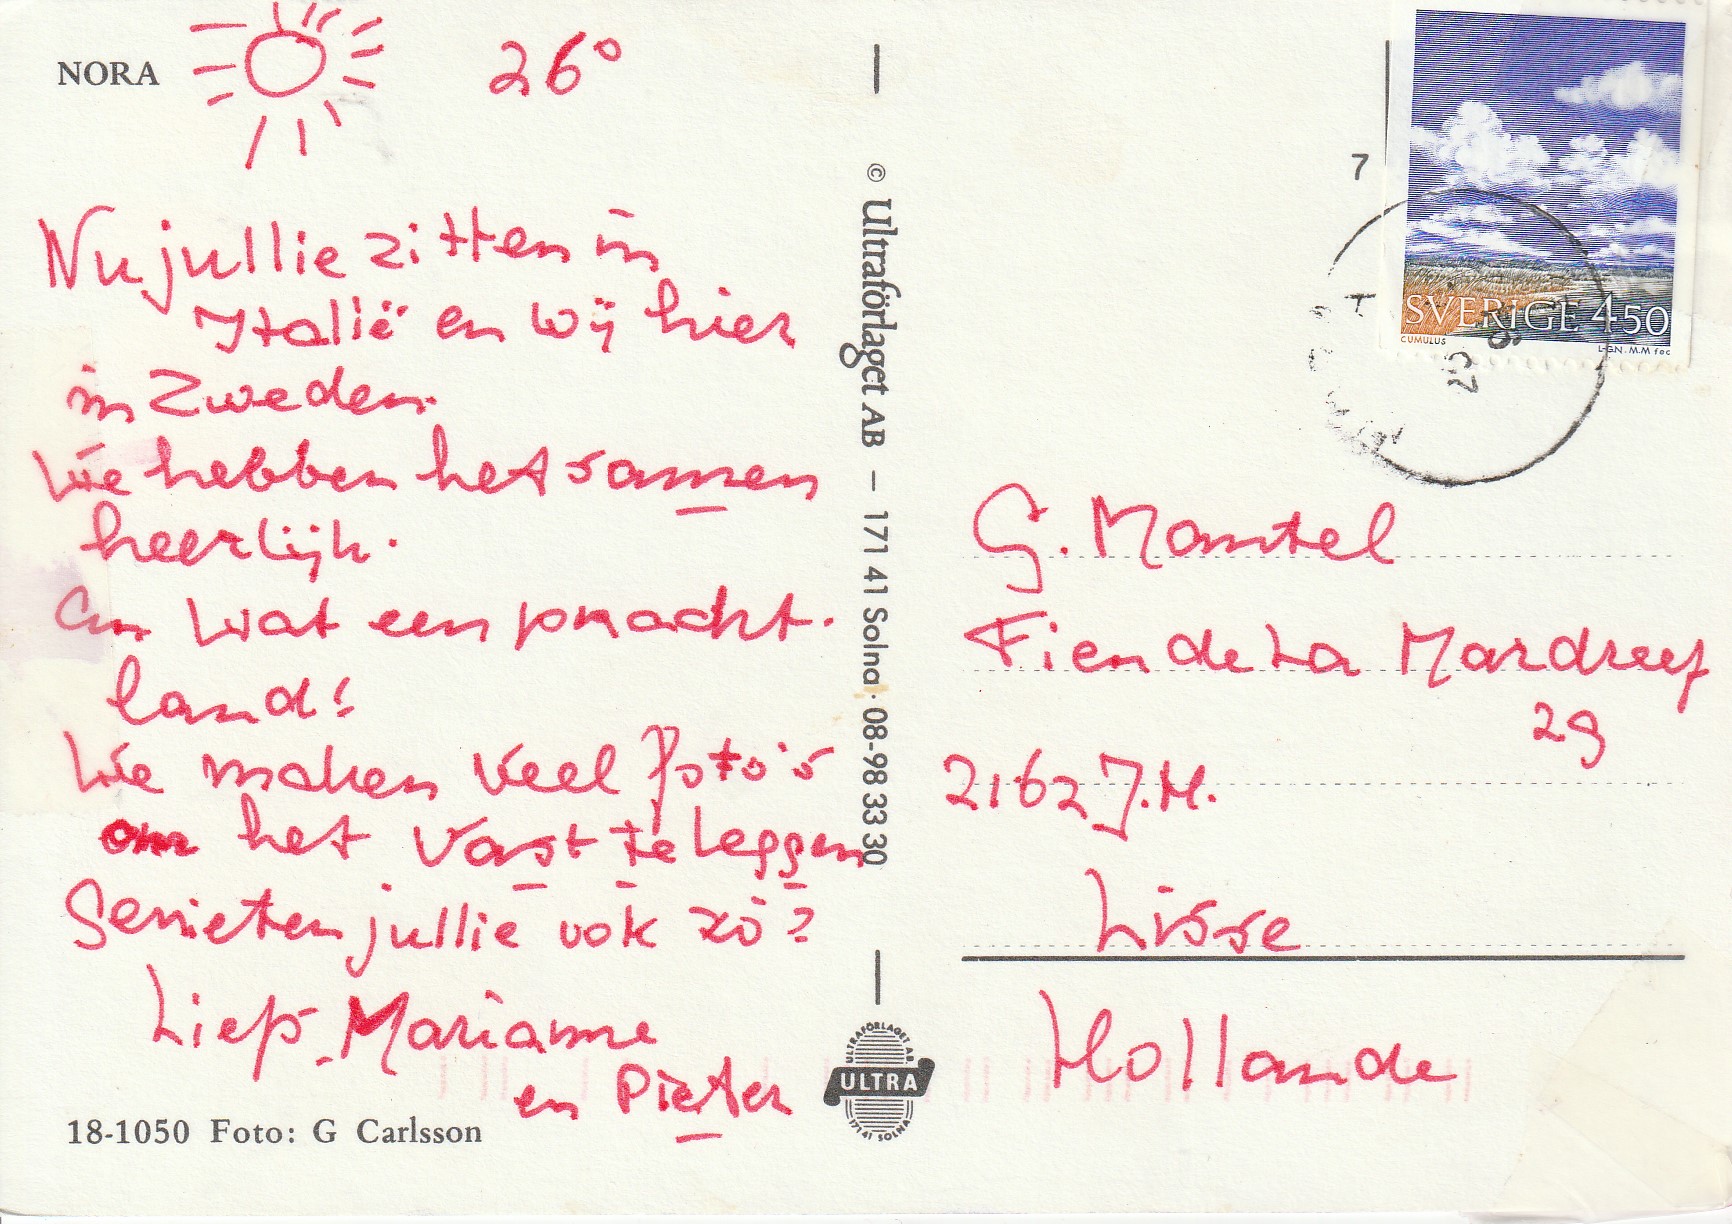 NORA
26°
Nu jullie zitten in
Italië en wij hier
in Zweden.
We hebben het samen
heerlijk.
En wat een pracht.
land!
We maken veel foto's
om het vast te leggen
Genieten jullie ook zó?
Liefs Marianne
en Pieter
18-1050 Foto: G Carlsson
© Ultraförlaget AB – 171 41 Solna · 08-98 33 30
ULTRAFÖRLAGET AB
ULTRA
171 41 SOLNA
7
SVERIGE 450
CUMULUS
L-GN. M.M fec
G. Mantel
Fien de La Mardreef
29
2162 J.H.
Lisse
Hollande